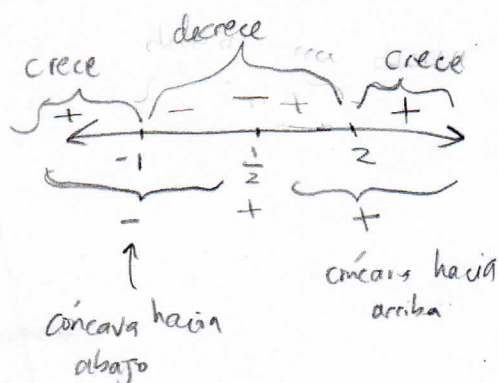 decrece
crece
crece
+ - - + +
-1 1/2 2
- + +
cóncava hacia
arriba
cóncava hacia
abajo